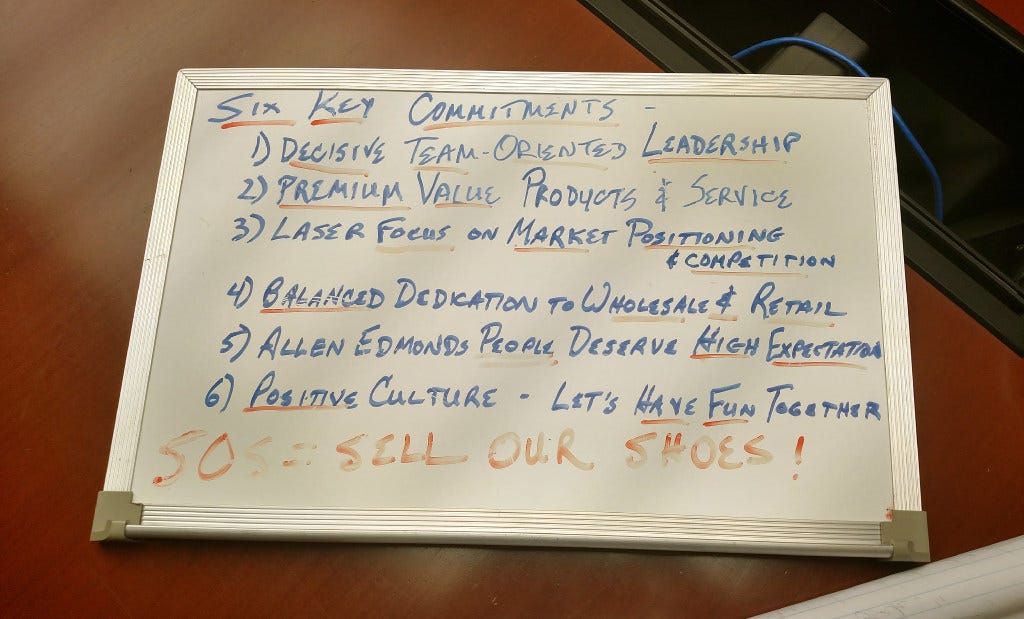 SIX KEY COMMITMENTS -
1) DECISIVE TEAM-ORIENTED LEADERSHIP
2) PREMIUM VALUE PRODUCTS & SERVICE
3) LASER FOCUS ON MARKET POSITIONING
& COMPETITION
4) BALANCED DEDICATION TO WHOLESALE & RETAIL
5) ALLEN EDMONDS PEOPLE DESERVE HIGH EXPECTATION
6) POSITIVE CULTURE - LET'S HAVE FUN TOGETHER
SOS = SELL OUR SHOES!